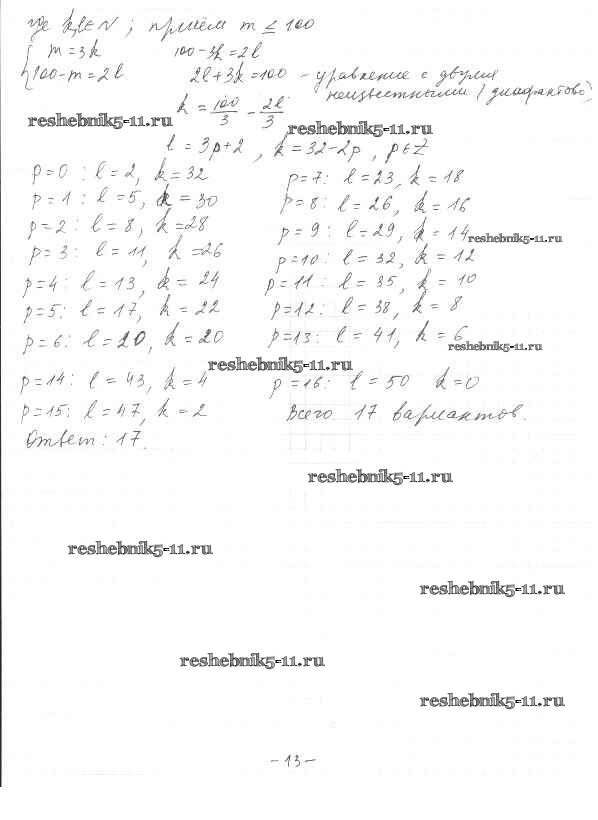 где k,l∈N ; причём m ≤ 100
{ m = 3k 100-3k=2l
100-m=2l 2l+3k=100 - уравнение с двумя
неизвестными (диофантово)
k = 100/3 - 2l/3
reshebnik5-11.ru reshebnik5-11.ru
l = 3p+2 , k=32-2p , p∈Z
p=0 : l=2, k=32 p=7: l=23, k=18
p=1 : l=5, k=30 p=8: l=26, k=16
p=2 : l=8, k=28 p=9: l=29, k=14
reshebnik5-11.ru
p=3: l=11, k=26 p=10: l=32, k=12
p=4: l=13, k=24 p=11: l=35, k=10
p=5: l=17, k=22 p=12: l=38, k=8
p=6: l=20, k=20 p=13: l=41, k=6
reshebnik5-11.ru
reshebnik5-11.ru
p=14: l=43, k=4 p=16: l=50 k=0
p=15: l=47, k=2 Всего 17 вариантов.
Ответ: 17.
reshebnik5-11.ru
reshebnik5-11.ru
reshebnik5-11.ru
reshebnik5-11.ru
reshebnik5-11.ru
-13-